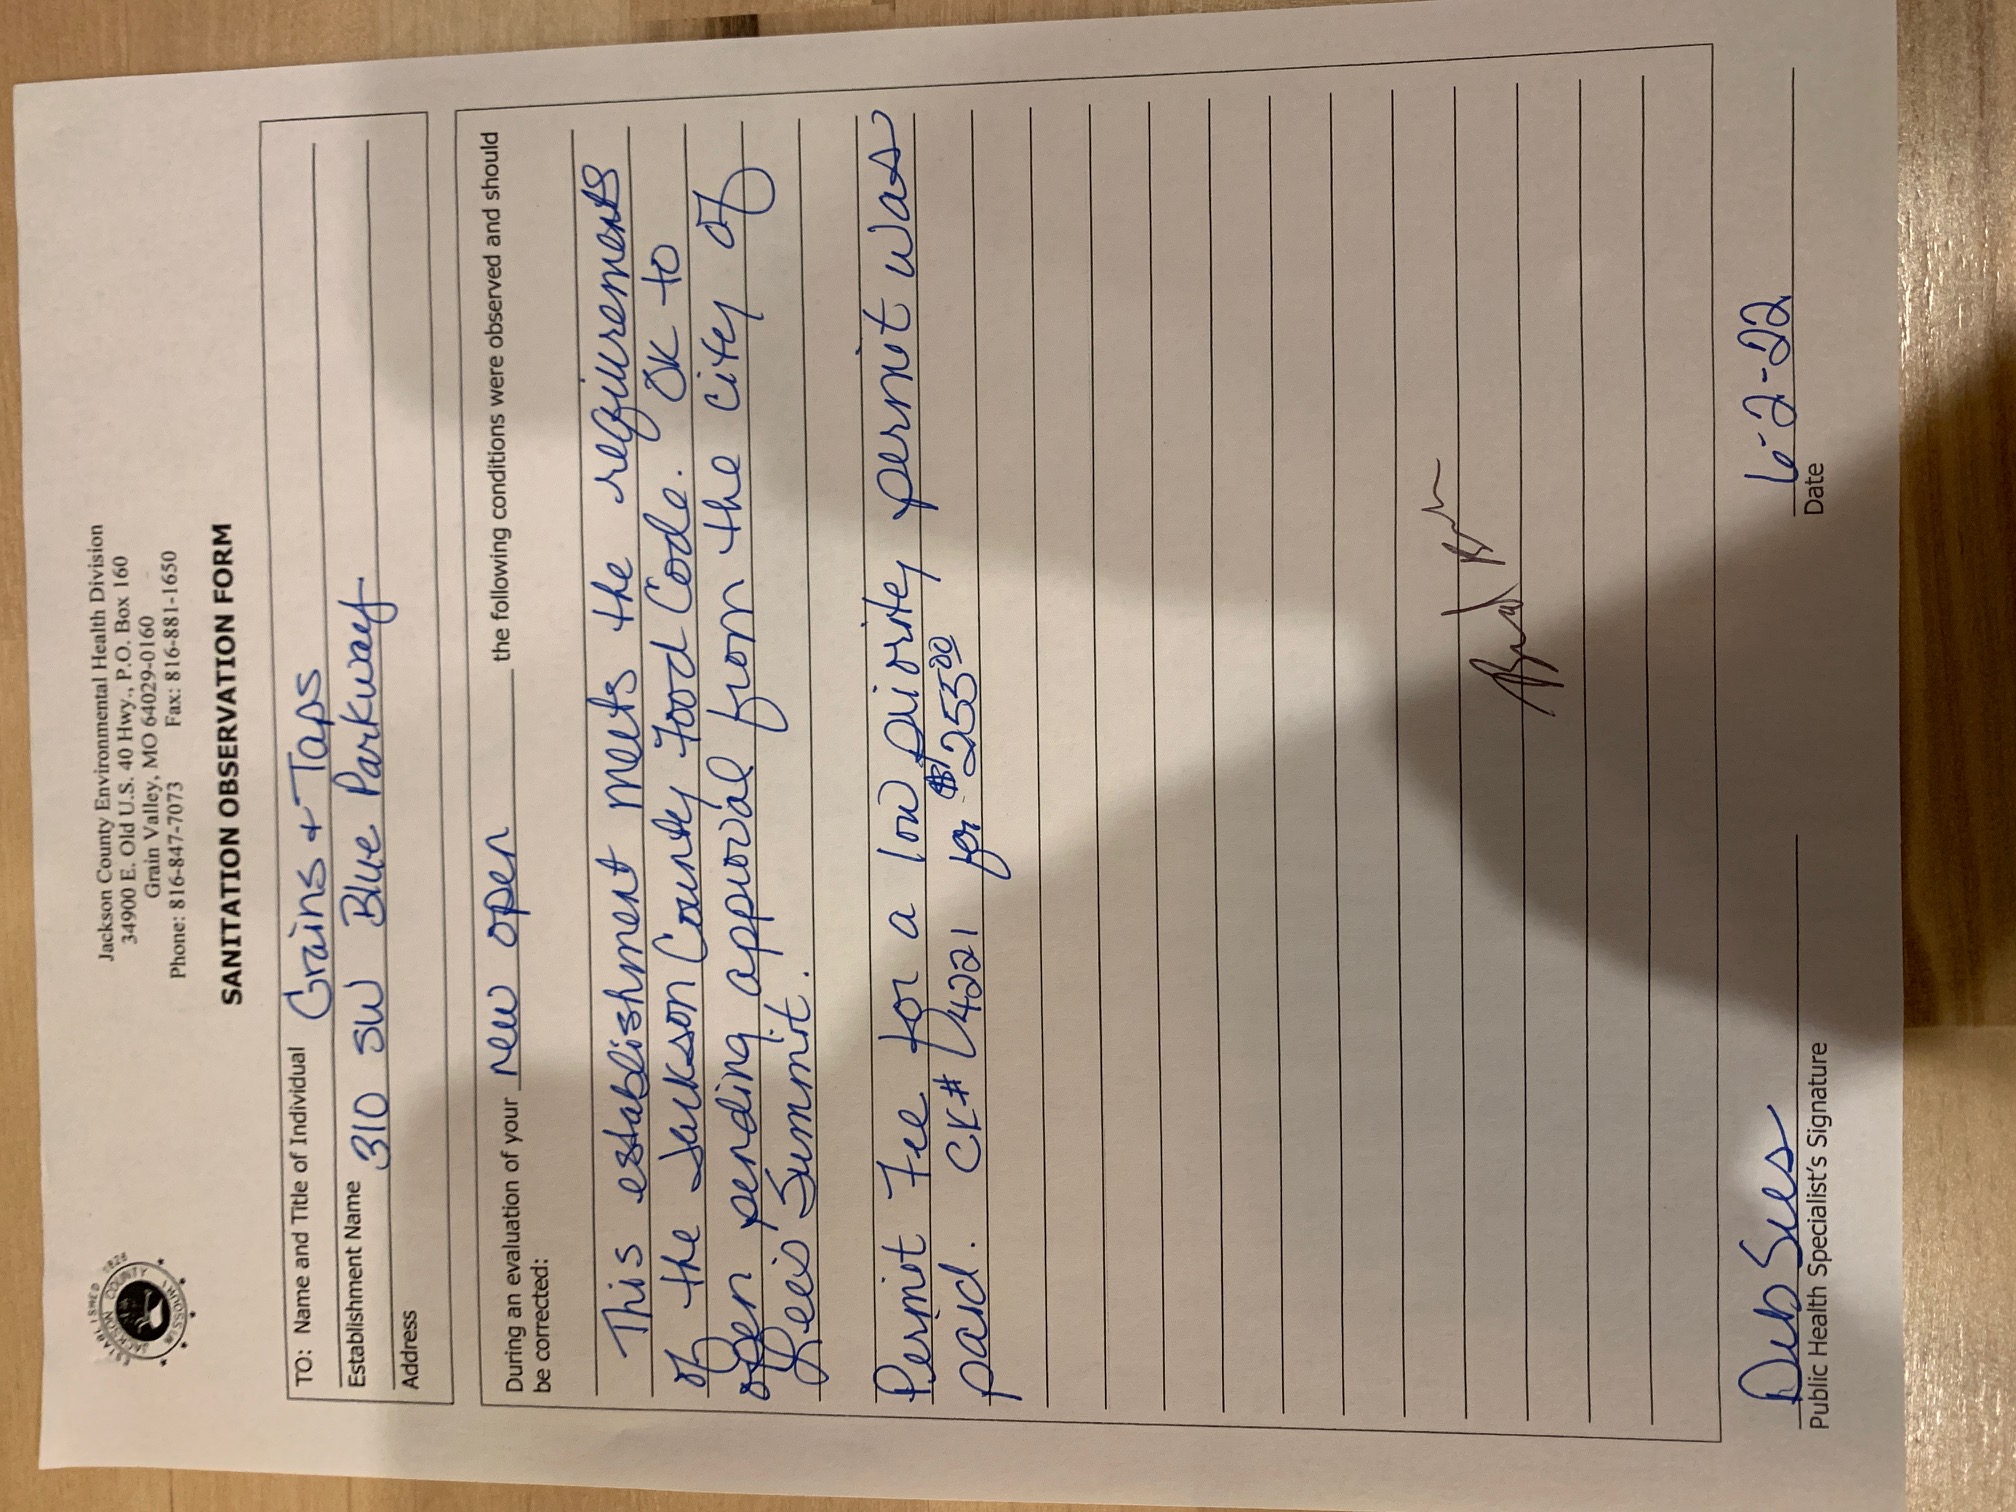 Jackson County Environmental Health Division
34900 E. Old U.S. 40 Hwy., P.O. Box 160
Grain Valley, MO 64029-0160
Phone: 816-847-7073 Fax: 816-881-1650
SANITATION OBSERVATION FORM
TO: Name and Title of Individual Grains + Taps
Establishment Name 310 SW Blue Parkway
Address
During an evaluation of your new open the following conditions were observed and should
be corrected:
This establishment meets the requirements
of the Jackson County Food Code. OK to
open pending approval from the City of
Lee's Summit.
Permit Fee for a low priority permit was
paid. CK# 4221 for $255.00
Deb Sees 6-2-22
Public Health Specialist's Signature Date